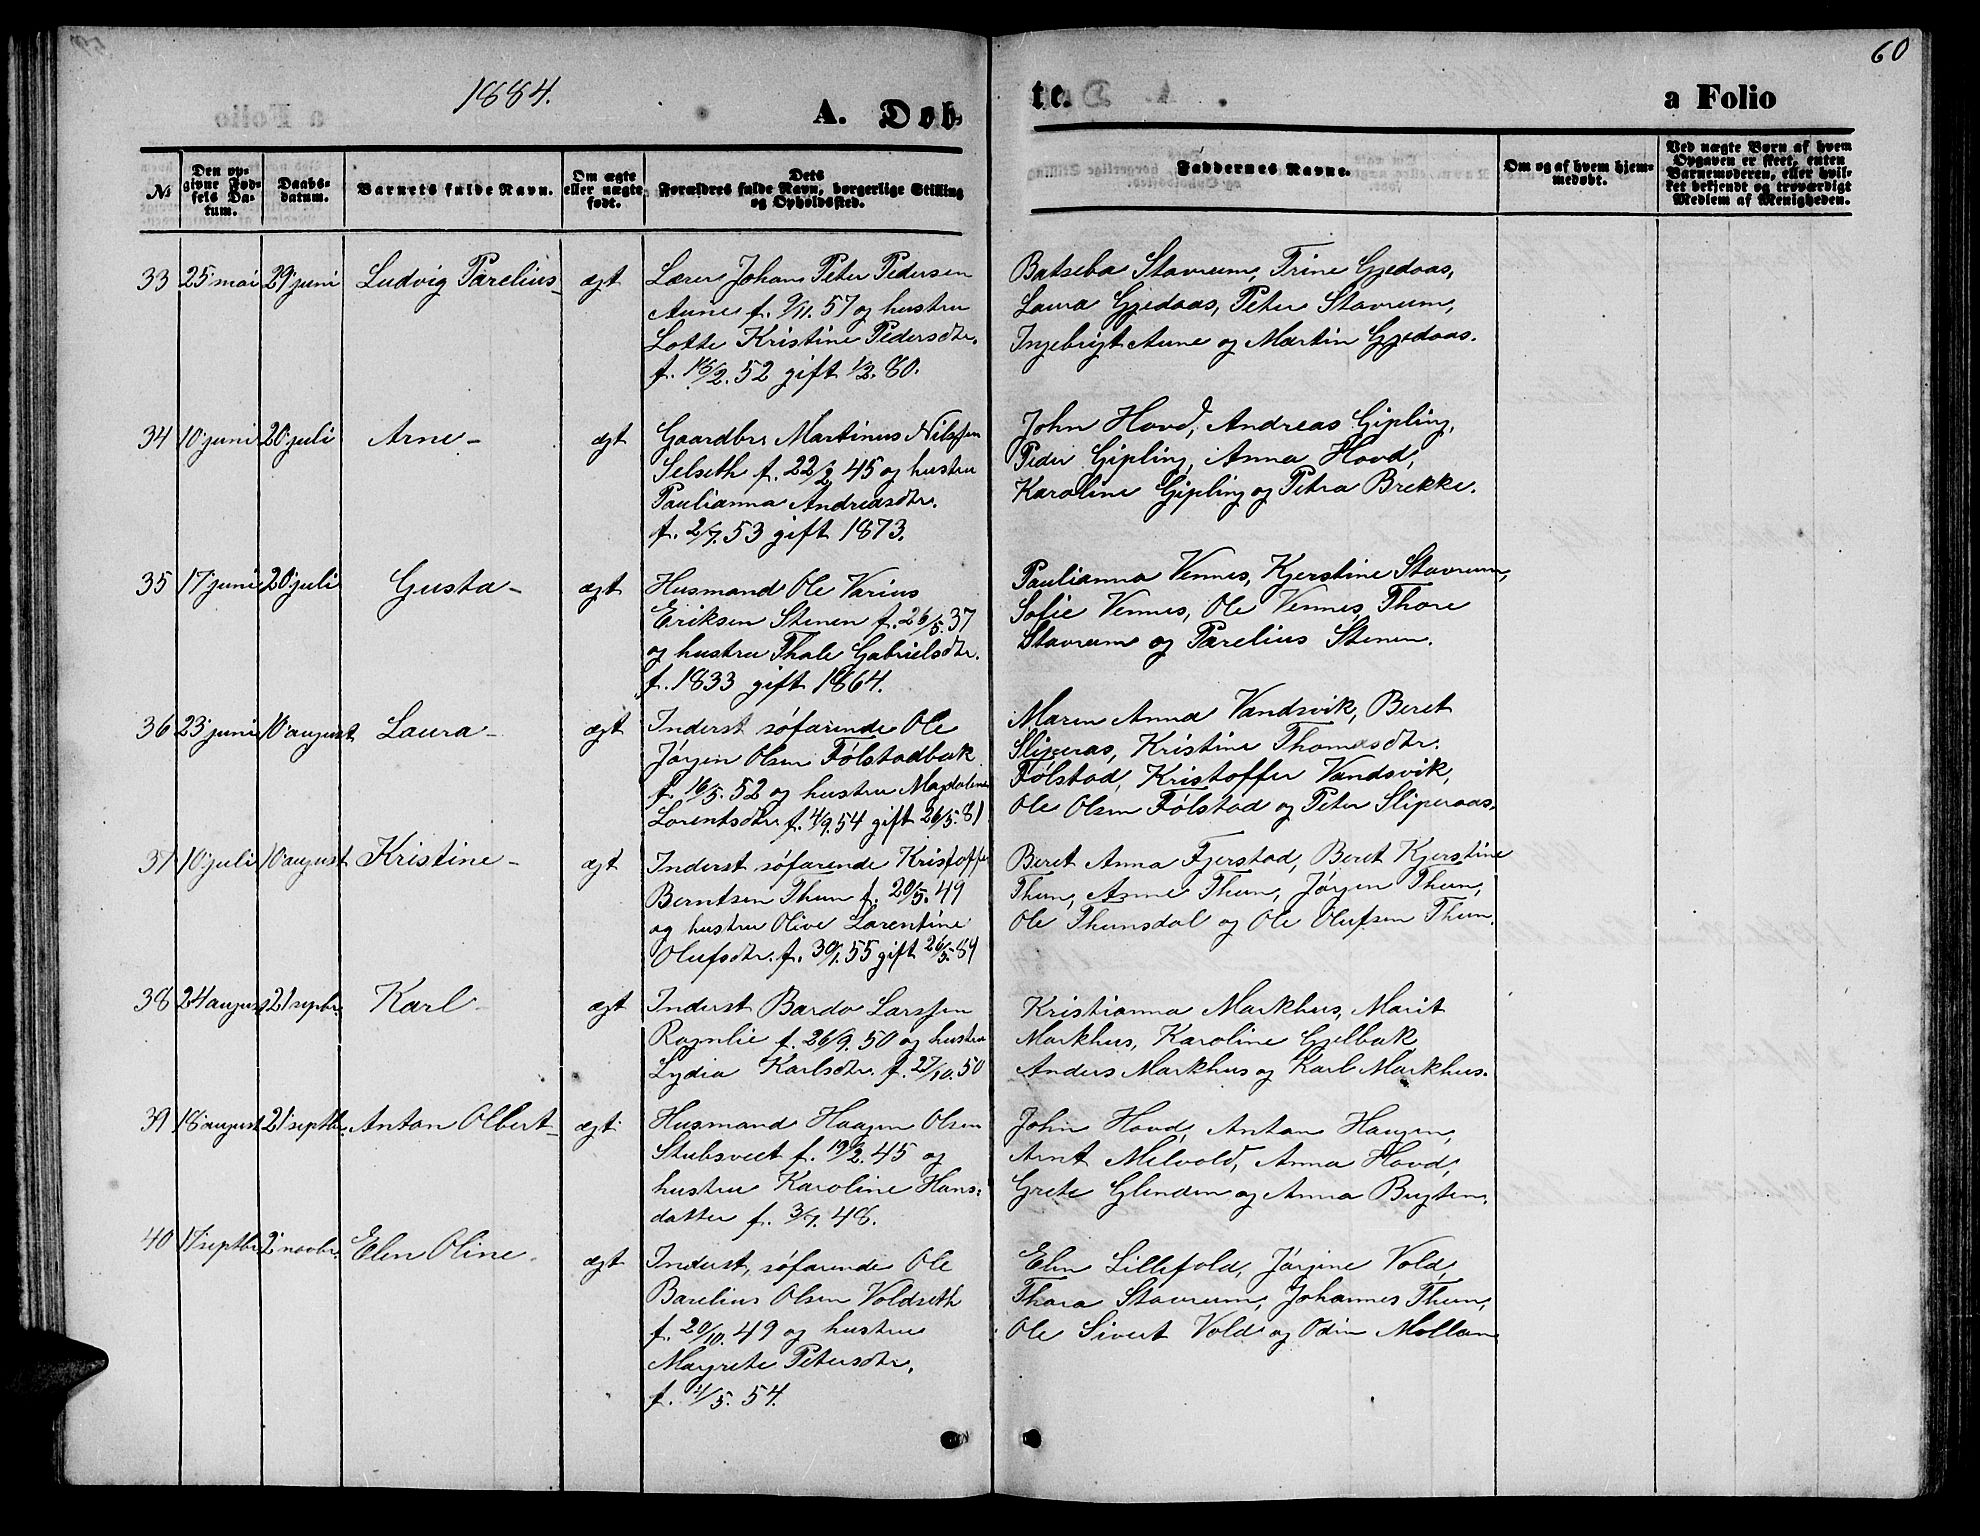 60
1884.
A. Døb-
te.
a Folio
№
Den op-
givne Fød-
sels Da-
tum.
Daabs-
datum.
Barnets fulde Navn.
Om ægte
eller uægte
født.
Dets
Forældres fulde Navn, borgerlige Stilling
og Opholdssted.
Faddernes Navne.
Om og af hvem hjem-
medøbt.
Ved uægte Børn af hvem
Opgaven er skeet, enten
Barnemoderen, eller hvil-
ket bekjendt og troværdigt
Medlem af Menigheden.
33 25 mai 29 juni Ludvig Parelius- ægt
Lærer Johan Peter Pedersen
Aune f. 9/11. 57 og hustru
Lotte Kristine Pedersdtr.
f. 18/2. 52 gift 1/3. 80.
Batseba Stavrum, Trine Gjedaas,
Laura Gjedaas, Peter Stavrum,
Ingebrigt Aune og Martin Gjedaas.
34 10 juni 20 juli Arne- ægt
Gaardbr. Martinus Nilssen
Selseth f. 22/2 45 og hustru
Paulianna Andreasdtr.
f. 2/7. 53 gift 1873.
John Hovd, Andreas Gipling,
Peder Gipling, Anna Hovd,
Karoline Gipling og Petra Brekke.
35 17 juni 20 juli Gusta- ægt
Husmand Ole Varius
Eriksen Stenen f. 26/5. 37
og hustru Thale Gabrielsdtr.
f. 1833 gift 1864.
Paulianna Vennes, Kjerstine Stavrum,
Sofie Vennes, Ole Vennes, Thore
Stavrum og Parelius Stenen.
36 23 juni 10 august Laura- ægt
Inderst søfarende Ole
Jørgen Olsen Følstadbak
f. 16/5. 52 og hustru Magdalena
Lorentsdtr. f. 4/9. 54 gift 26/5. 81
Maren Anna Vandsvik, Beret
Sliperas, Kristine Thomasdtr.
Følstad, Kristoffer Vandsvik,
Ole Olsen Følstad og Peter Sliperaas.
37 10 juli 10 august Kristine- ægt
Inderst søfarende Kristoffer
Berntsen Thun f. 20/5. 49
og hustru Olive Larentine
Olufsdtr. f. 30/1. 55 gift 26/5. 84
Beret Anna Fjerstad, Beret Kjerstine
Thun, Anne Thun, Jørgen Thun,
Ole Thunsdal og Ole Olufsen Thun.
38 24 august 21 septbr. Karl- ægt
Inderst Bardo Larssen
Rognlie f. 26/9. 50 og hustru
Lydia Karlsdtr. f. 27/10. 50
Kristianna Markhus, Marit
Markhus, Karoline Gjelbak
Anders Markhus og Karl Markhus.
39 18 august 21 septbr. Anton Olbert- ægt
Husmand Haagen Olsen
Stubsveet f. 19/2. 45 og
hustru Karoline Hans-
datter f. 3/7. 48.
John Hovd, Anton Haugen,
Arnt Melvold, Anna Hovd,
Grete Glenden og Anna Bugten.
40 17 septbr 2 novbr. Elen Oline. ægt
Inderst, søfarende Ole
Barelius Olsen Voldseth
f. 20/10. 49 og hustru
Margrete Petersdtr.
f. 4/5. 54.
Elen Lillefold, Jørgine Vold,
Thora Stavrum, Johannes Thun,
Ole Sivert Vold og Odin Mollan